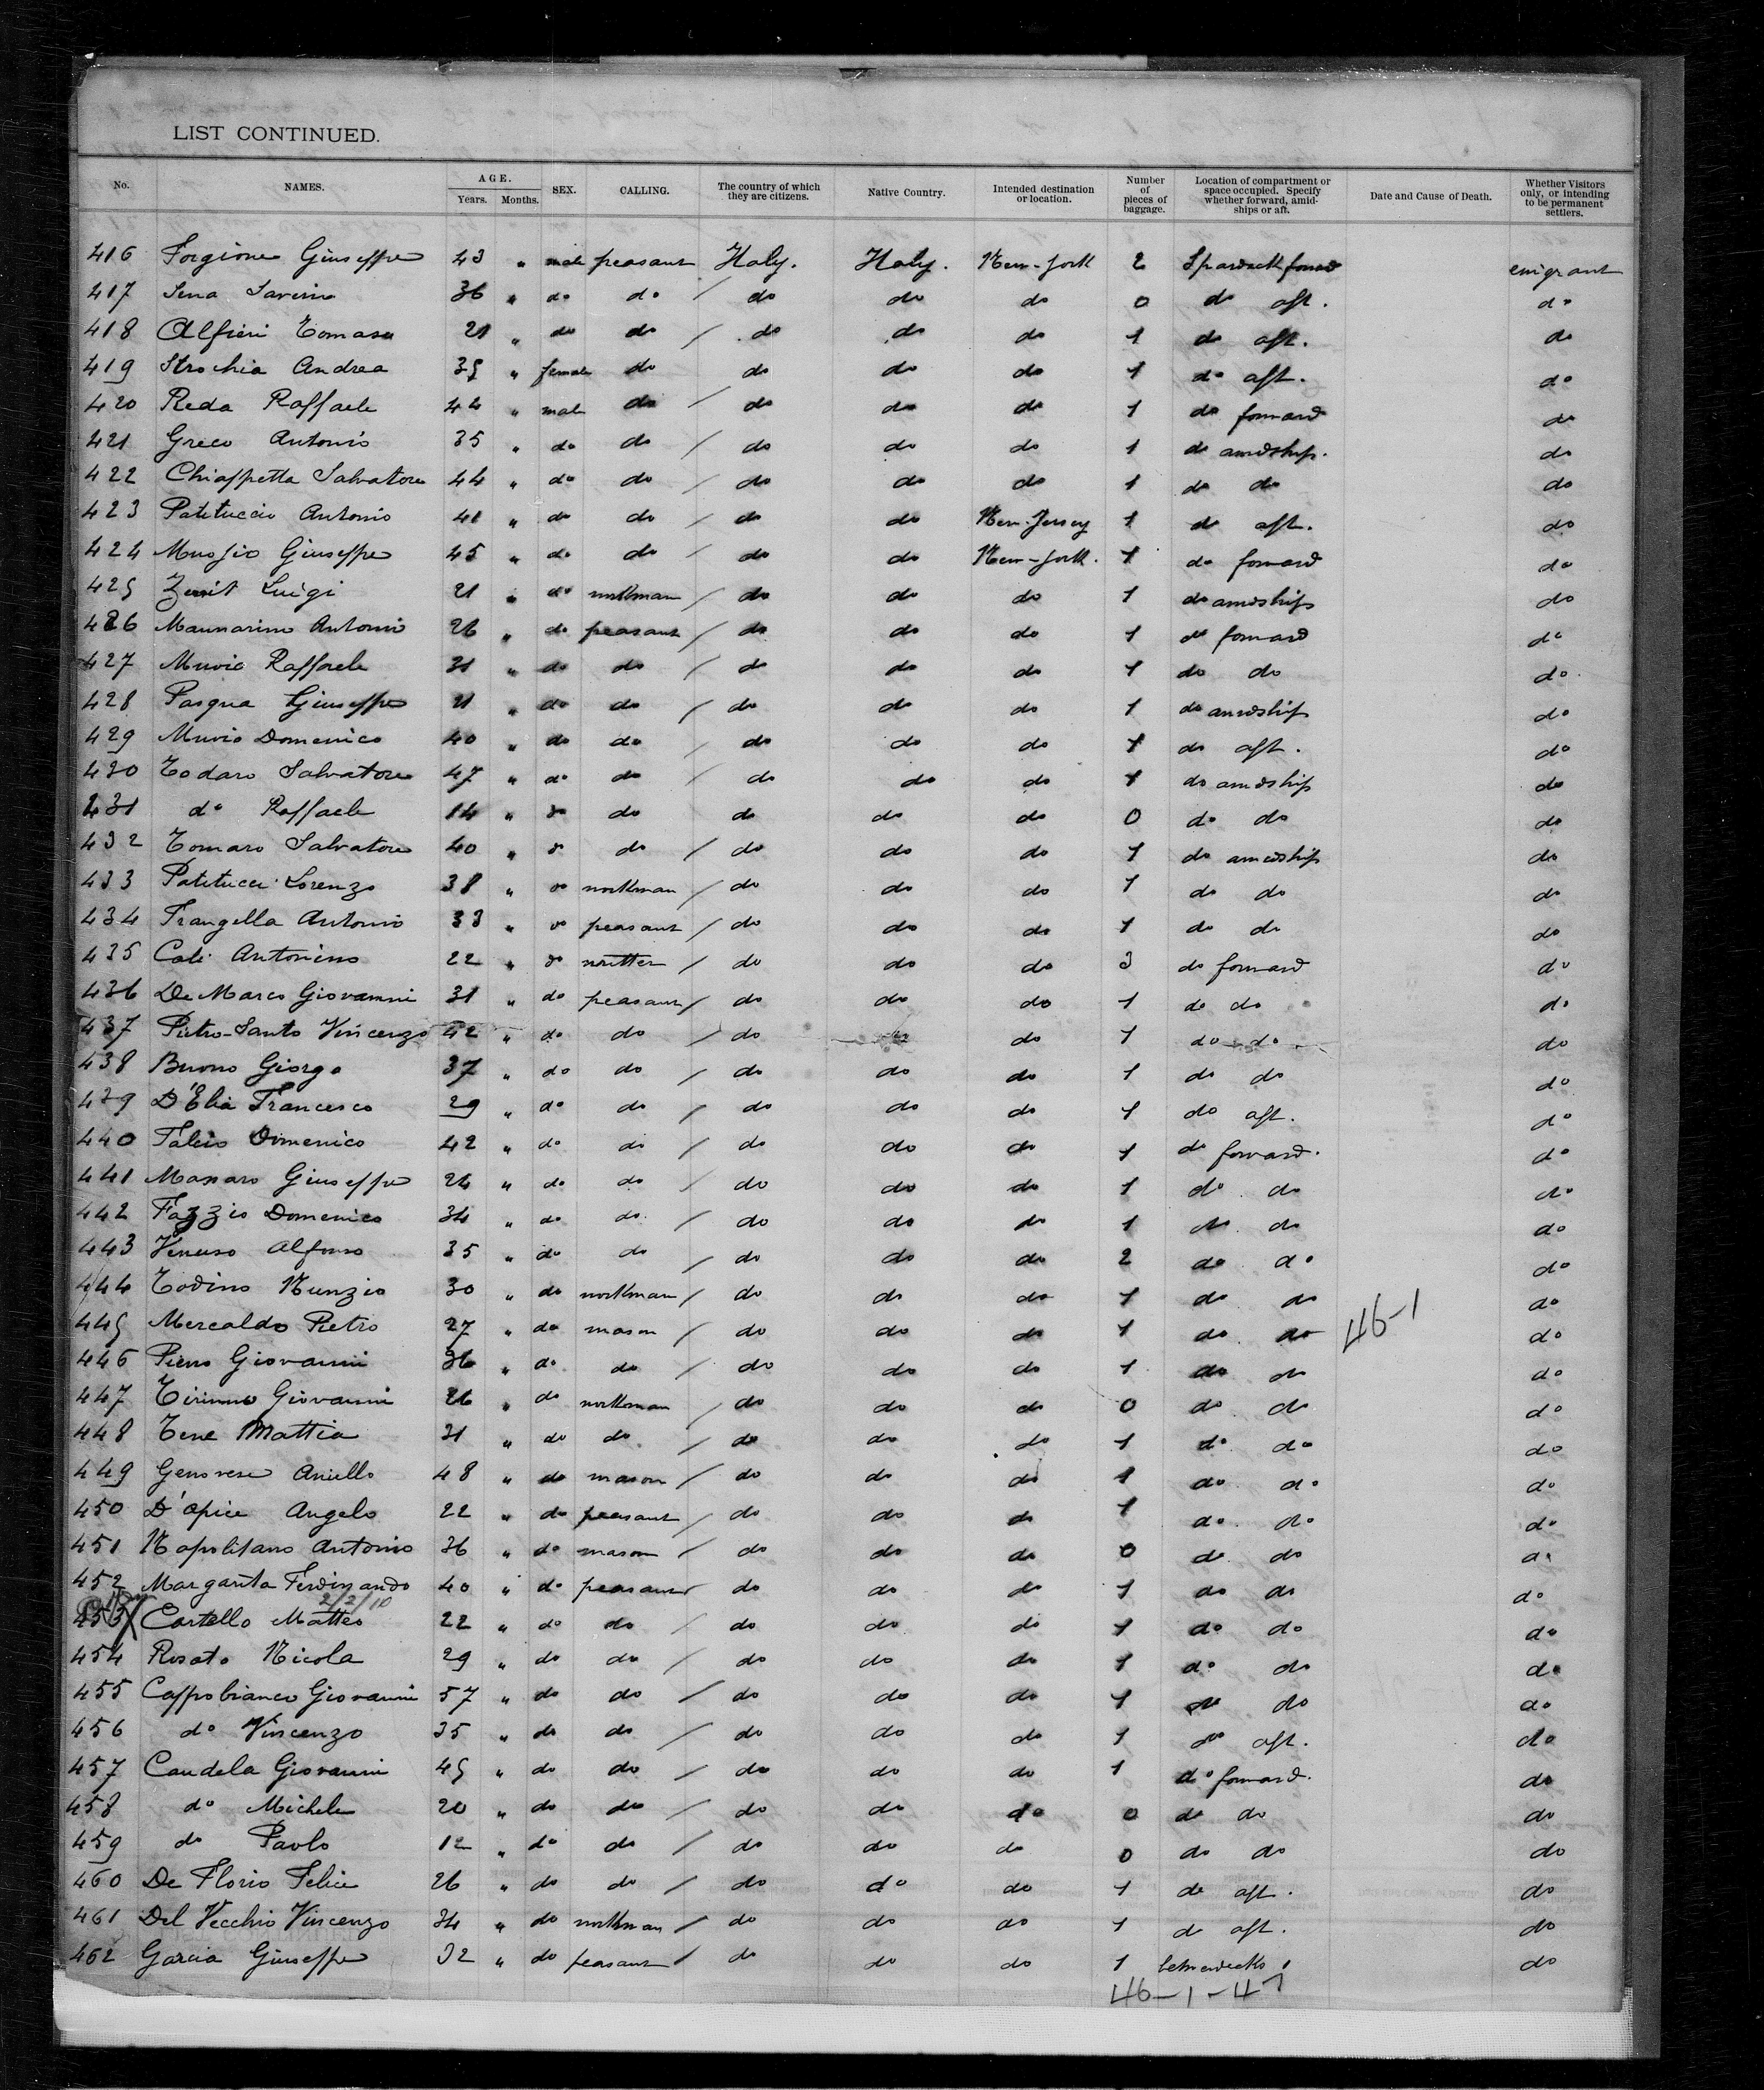 LIST CONTINUED.
No. NAMES. AGE. Years. Months. SEX. CALLING. The country of which they are citizens. Native Country. Intended destination or location. Number of pieces of baggage. Location of compartment or space occupied. Specify whether forward, amidships or aft. Date and Cause of Death. Whether Visitors only, or intending to be permanent settlers.
416 Forgione Giuseppe 43 " male peasant Italy. Italy. New-York 2 forward emigrant
417 Sena Saverio 36 " do do / do do do 0 do aft. do
418 Alfieri Tomaso 21 " do do / do do do 1 do aft. do
419 Andrea 35 " female do do do do 1 do aft. do
420 Reda Raffaele 44 " male do / do do do 1 do forward do
421 Greco Antonio 35 " do do / do do do 1 do amidship. do
422 Chiappetta Salvatore 44 " do do / do do do 1 do do do
423 Patituccio Antonio 41 " do do / do do New-Jersey 1 do aft. do
424 Giuseppe 45 " do do / do do New-York. 1 do forward do
425 Luigi 21 " do workman / do do do 1 do amidship do
426 Mannarino Antonio 26 " do peasant / do do do 1 do forward do
427 Raffaele 31 " do do / do do do 1 do do do
428 Pasqua Giuseppe 21 " do do / do do do 1 do amidship do
429 Domenico 40 " do do / do do do 1 do aft. do
430 Todaro Salvatore 47 " do do / do do do 1 do amidship do
431 do Raffaele 14 " do do do do do 0 do do do
432 Tomaro Salvatore 40 " do do / do do do 1 do amidship do
433 Patitucci Lorenzo 38 " do workman / do do do 1 do do do
434 Frangella Antonio 33 " do peasant / do do do 1 do do do
435 Cali Antonino 22 " do / do do do 3 do forward do
436 De Marco Giovanni 31 " do peasant / do do do 1 do do do
437 Pietro-Santo Vincenzo 42 " do do / do do do 1 do do do
438 Buono Giorgo 37 " do do / do do do 1 do do do
439 D'Elia Francesco 29 " do do / do do do 1 do aft. do
440 Domenico 42 " do do / do do do 1 do forward. do
441 Giuseppe 24 " do do / do do do 1 do do do
442 Fazzio Domenico 34 " do do / do do do 1 do do do
443 Alfonso 35 " do do / do do do 2 do do do
444 Todino Nunzio 30 " do workman / do do do 1 do do do
445 Mercaldo Pietro 27 " do mason / do do do 1 do do 46-1 do
446 Giovanni 36 " do do / do do do 1 do do do
447 Tirinno Giovanni 26 " do workman / do do do 0 do do do
448 Tene Mattia 31 " do do / do do do 1 do do do
449 Genovese Aniello 48 " do mason / do do do 1 do do do
450 D'Apice Angelo 22 " do peasant / do do do 1 do do do
451 Napolitano Antonio 36 " do mason / do do do 0 do do do
452 Margarita Ferdinando 40 " do peasant / do do do 1 do do do
2/2/10
453 X Cartello Matteo 22 " do do / do do do 1 do do do
454 Rosato Nicola 29 " do do / do do do 1 do do do
455 Cappobianco Giovanni 57 " do do / do do do 1 do do do
456 do Vincenzo 35 " do do / do do do 1 do aft. do
457 Candela Giovanni 45 " do do / do do do 1 do forward. do
458 do Michele 20 " do do / do do do 0 do do do
459 do Paolo 12 " do do / do do do 0 do do do
460 De Florio Felice 26 " do do / do do do 1 do aft. do
461 Del Vecchio Vincenzo 34 " do workman / do do do 1 do aft. do
462 Garcia Giuseppe 32 " do peasant / do do do 1 do
46-1-47